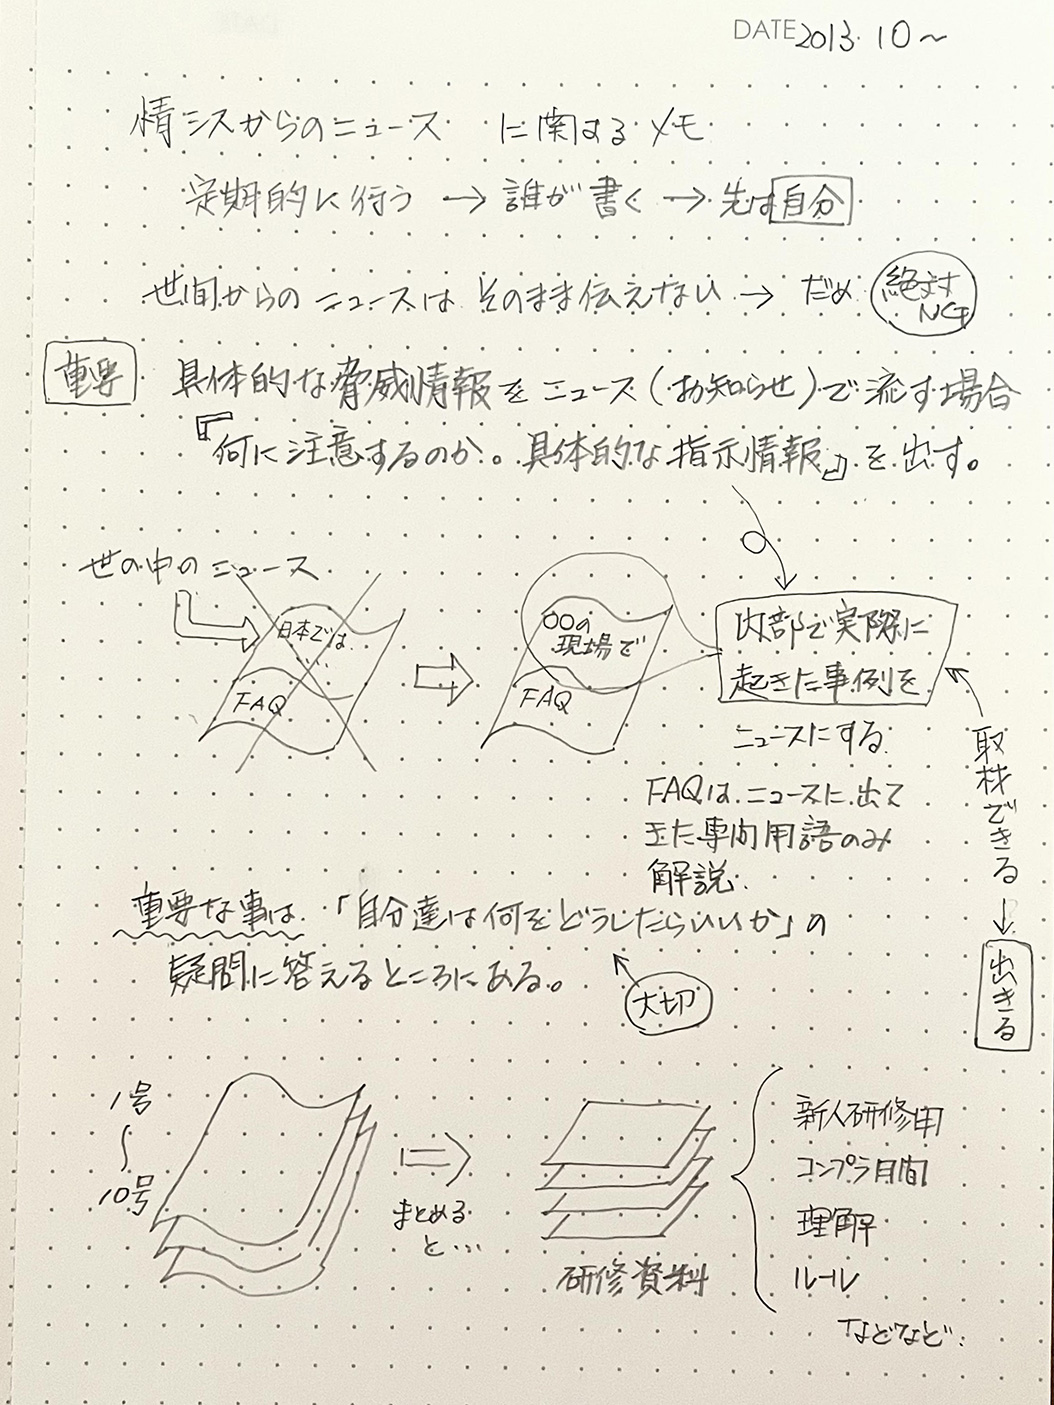 DATE 2013.10〜
情シスからのニュース に関するメモ
定期的に行う → 誰が書く → 先は自分
世間からのニュースは そのまま伝えない → だめ 絶対NG
重要 具体的な脅威情報をニュース(お知らせ)で流す場合
『何に注意するのか。具体的な指示情報』を出す。
世の中のニュース
日本では…
FAQ
○○の
現場で
FAQ
内部で実際に
起きた事例を
ニュースにする
FAQは ニュースに出て
きた専門用語のみ
解説.
取材できる → 出きる
重要な事は 「自分達は何をどうしたらいいか」の
疑問に答えるところにある。
大切
1号
〜
10号
まとめる
と…
研修資料
新人研修用
コンプラ月間
理解
ルール
などなど.